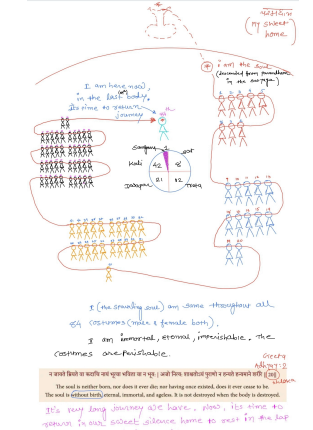 (My sweet home)
i am the soul
(descended from paramdham in the satyuga)
I am here now,
in the last body.
Its time to return
journey
Sangam 1 sat
Kali 42 8
21 12
Dwapar Treta
I (the sparkling soul) am same throughout all
84 costumes (male & female both).
I am immortal, eternal, imperishable. The
costumes are perishable.
Geeta
Adhyay: 2
न जायते म्रियते वा कदाचि नायं भूत्वा भविता वा न भूयः | अजो नित्यः शाश्वतोऽयं पुराणो न हन्यते हन्यमाने शरीरे || 20||
The soul is neither born, nor does it ever die; nor having once existed, does it ever cease to be.
The soul is without birth, eternal, immortal, and ageless. It is not destroyed when the body is destroyed.
It's very long journey we have. Now, its time to
return in our sweet silence home to rest in the lap